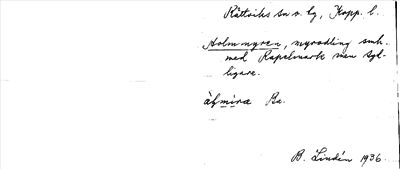 Rättviks sn o. tg, Kopp. l.
Holmmyren, myrodling smh.
med Kapelmark men syd-
ligare.
Ba.
B. Lindén 1936